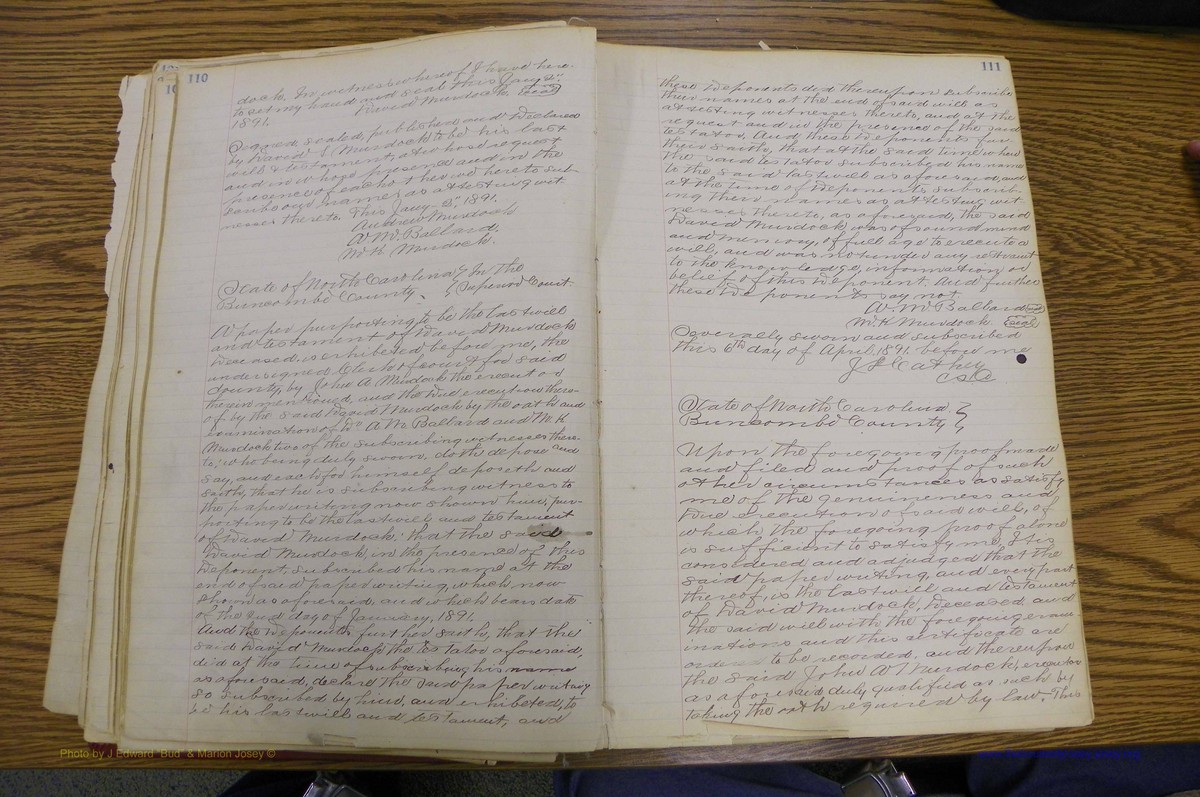 110
dock. In witness whereof I have here-
to set my hand and seal this Jany 2nd
1891. David Murdock (Seal)
Signed, sealed, published and declared
by David Murdock to be his last
will & testament, at whose request
and in whose presence and in the
presence of each other we hereto sub-
scribe our names as attesting wit
nesses thereto. This Jany 2nd 1891.
Andrew Murdock
A. M. Ballard,
M. K. Murdock.
State of North Carolina } In the
Buncombe County, } Superior Court
A paper purporting to be the last will
and testament of David Murdock
deceased, is exhibited before me, the
undersigned Clerk of Court for said
County, by John A. Murdock the executor
therein mentioned, and the due execution there-
of by the said David Murdock by the oath and
examination of A. M. Ballard and M. K
Murdock two of the subscribing witnesses there-
to; who being duly sworn, doth depose and
say, and each for himself deposeth and
saith, that he is subscribing witness to
the paper writing now shown him, pur-
porting to be the last will and testament
of David Murdock: that the said
David Murdock, in the presence of this
deponent, subscribed his name at the
end of said paper writing, which now
shown as aforesaid, and which bears date
of the 2nd day of January, 1891.
And the deponents further saith, that the
said David Murdock the testator aforesaid,
did at the time of subscribing his name
as aforesaid, declare the said paper writing
so subscribed by him, and exhibited, to
be his last will and testament, and
111
these deponents did thereupon subscribe
their names at the end of said will as
attesting witnesses thereto, and at the
request and in the presence of the said
testator. And these deponents fur-
ther saith, that at the said time when
the said testator subscribed his name
to the said last will as aforesaid, and
at the time of deponents subscrib-
ing their names as attesting wit-
nesses thereto, as aforesaid, the said
David Murdock was of sound mind
and memory, of full age to execute a
will, and was not under any restraint
to the knowledge, information or
belief of this deponent. And further
these deponents say not.
A. M. Ballard (Seal)
M. K. Murdock (Seal)
Severally sworn and subscribed
this 6th day of April, 1891. before me
J L Cathey
C S C
State of North Carolina }
Buncombe County }
Upon the foregoing proof made
and filed and proof of such
other circumstances as satisfy
me of the genuineness and
due execution of said will, of
which the foregoing proof alone
is sufficient to satisfy me, It is
considered and adjudged that the
said paper writing, and every part
thereof, is the last will and testament
of David Murdock, deceased, and
the said will with the foregoing exam
inations and this certificate are
ordered to be recorded, and thereupon
the said John A Murdock, executor
as aforesaid duly qualified as such by
taking the oath required by law. This
Photo by J Edward "Bud" & Marion Josey ©